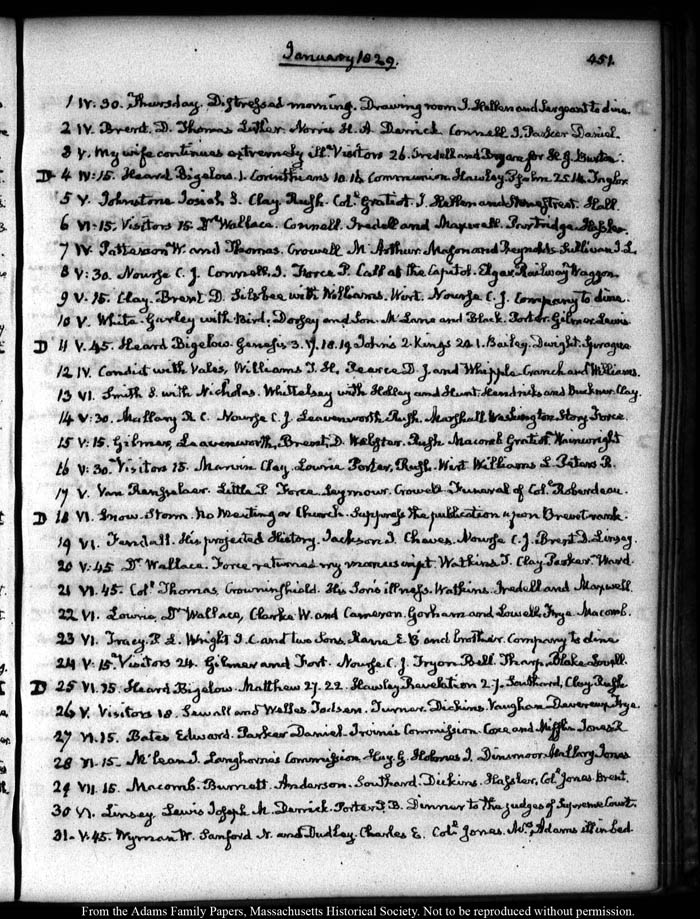 January 1829.
451.
1 IV: 30. Thursday. Distressed morning. Drawing room J. Hellen and Sergeant to dine.
2 IV. Brent. D. Thomas Luther. Norris H. A Derrick Connell J. Parker Daniel
3 V. My wife continues extremely ill. Visitors 26. Iredell and Bryan for H. G. Burton.
D 4 IV: 15. Heard Bigelow. 1. Corinthians 10. 16 Communion. Hawley. Psalm 25. 14.
5 V. Johnstone. Josiah S. Clay. Rush. Colº. Gratiot. J. Hellen and Hall
6 VI: 15. Visitors 15 Dr. Wallace. Connell. Iredell and Maxwell. Partridge. Hassler.
7 IV. Patterson W. and Thomas. Crowell McArthur. Mason and Reynolds. Sullivan J. L.
8 V: 30. Nourse C. J. Connell. J. Force P. Call at the Capitol. Elgar. Railway Waggon
9 V. 15. Clay. Brent D. Silsbee with Williams. Wirt. Nourse C. J. Company to dine.
10 V. White. Gurley with Bird. Dorsey and Son. McLane and Black. Porter. Gilmer Lewis
D 11 V. 45. Heard Bigelow. Genesis 3. 17. 18. 19 2. Kings 20 1. Bailey. Dwight. Sprague
12 IV. Condict with Vales, Williams T. H, Pearce D. J. and Whipple Cranch and Williams.
13 VI. Smith S. with Nicholas. Whittelsey with Holley and Hunt. Hendricks and Buckner. Clay.
14 V: 30. Mallary R C. Nourse C. J. Leavenworth. Rush. Marshall Washington Story Force.
15 V: 15. Gilmer, Leavenworth, Brent. D. Webster. Rush. Macomb Gratiot Wainwright
16 V: 30. Visitors 15. Marvin Clay Lowrie Porter, Rush. Wirt Williams L. Peters R.
17 V. Van Rensselaer. Little P Force Seymour. Crowell Funeral of Colº Roberdeau.
D 18 VI. Snow Storm. No Meeting or Church. Suppress the publication upon Brevet rank.
19 VI. Fendall. His projected History. Jackson J. Chaves. Nourse C. J. Brent D. Linsey.
20 V: 45 Dr. Wallace. Force returned my manuscript. Watkins T. Clay Parker Ward.
21 VI. 45. Colº. Thomas. Crowninshield. His Son's illness. Watkins. Iredell and Maxwell.
22 VI. Lowrie, Dr. Wallace, Clarke W. and Cameron. Gorham and Lowell, Frye Macomb.
23 VI. Tracy. P. L. Wright J. C and two Sons. Kane E. K and brother. Company to dine
24 V: 15. Visitors 24. Gilmer and Fort. Nourse C. J. Tryon Bell. Tharp, Blake Lovell.
D 25 VI. 15. Heard Bigelow Matthew 27. 22. Hawley Revelation 2. 7. Southard, Clay Rush
26 V. Visitors 18. Sewall and Welles Jodsen. Turner. Dickins. Vaughan Devereux, Frye.
27 VI. 15. Bates Edward. Parker Daniel. Irvine's Commission. Coxe and Mifflin Jones R
28 VI. 15. McLean J. Langhorne's Commission. Hay. G. Holmes J. Dinsmoor. Mallory. Jones
29 VII. 15. Macomb. Burnett. Anderson. Southard. Dickins. Hassler, Colº. Jones. Brent.
30 VI. Linsey Lewis Joseph M. Derrick. Porter P. B. Dinner to the judges of Supreme Court.
31. V: 45. Wyman W. Sanford N. and Dudley Charles E. Colº. Jones. Mrs. Adams ill in bed
From the Adams Family Papers, Massachusetts Historical Society. Not to be reproduced without permission.